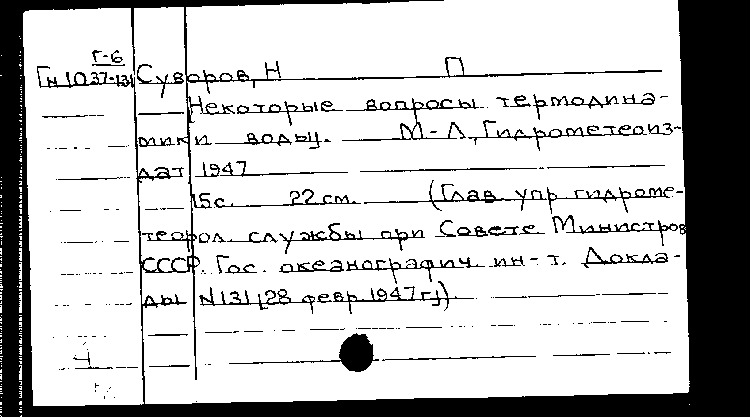 Г-6
Гн 1037-131 Суворов, Н П
Некоторые вопросы термодина-
мики воды. М-Л, Гидрометеоиз-
дат 1947
15с. 22см. (Глав упр гидроме-
теорол. службы при Совете Министров
СССР. Гос. океанографич. ин-т. Докла-
ды N131 [28 февр. 1947г]).
4